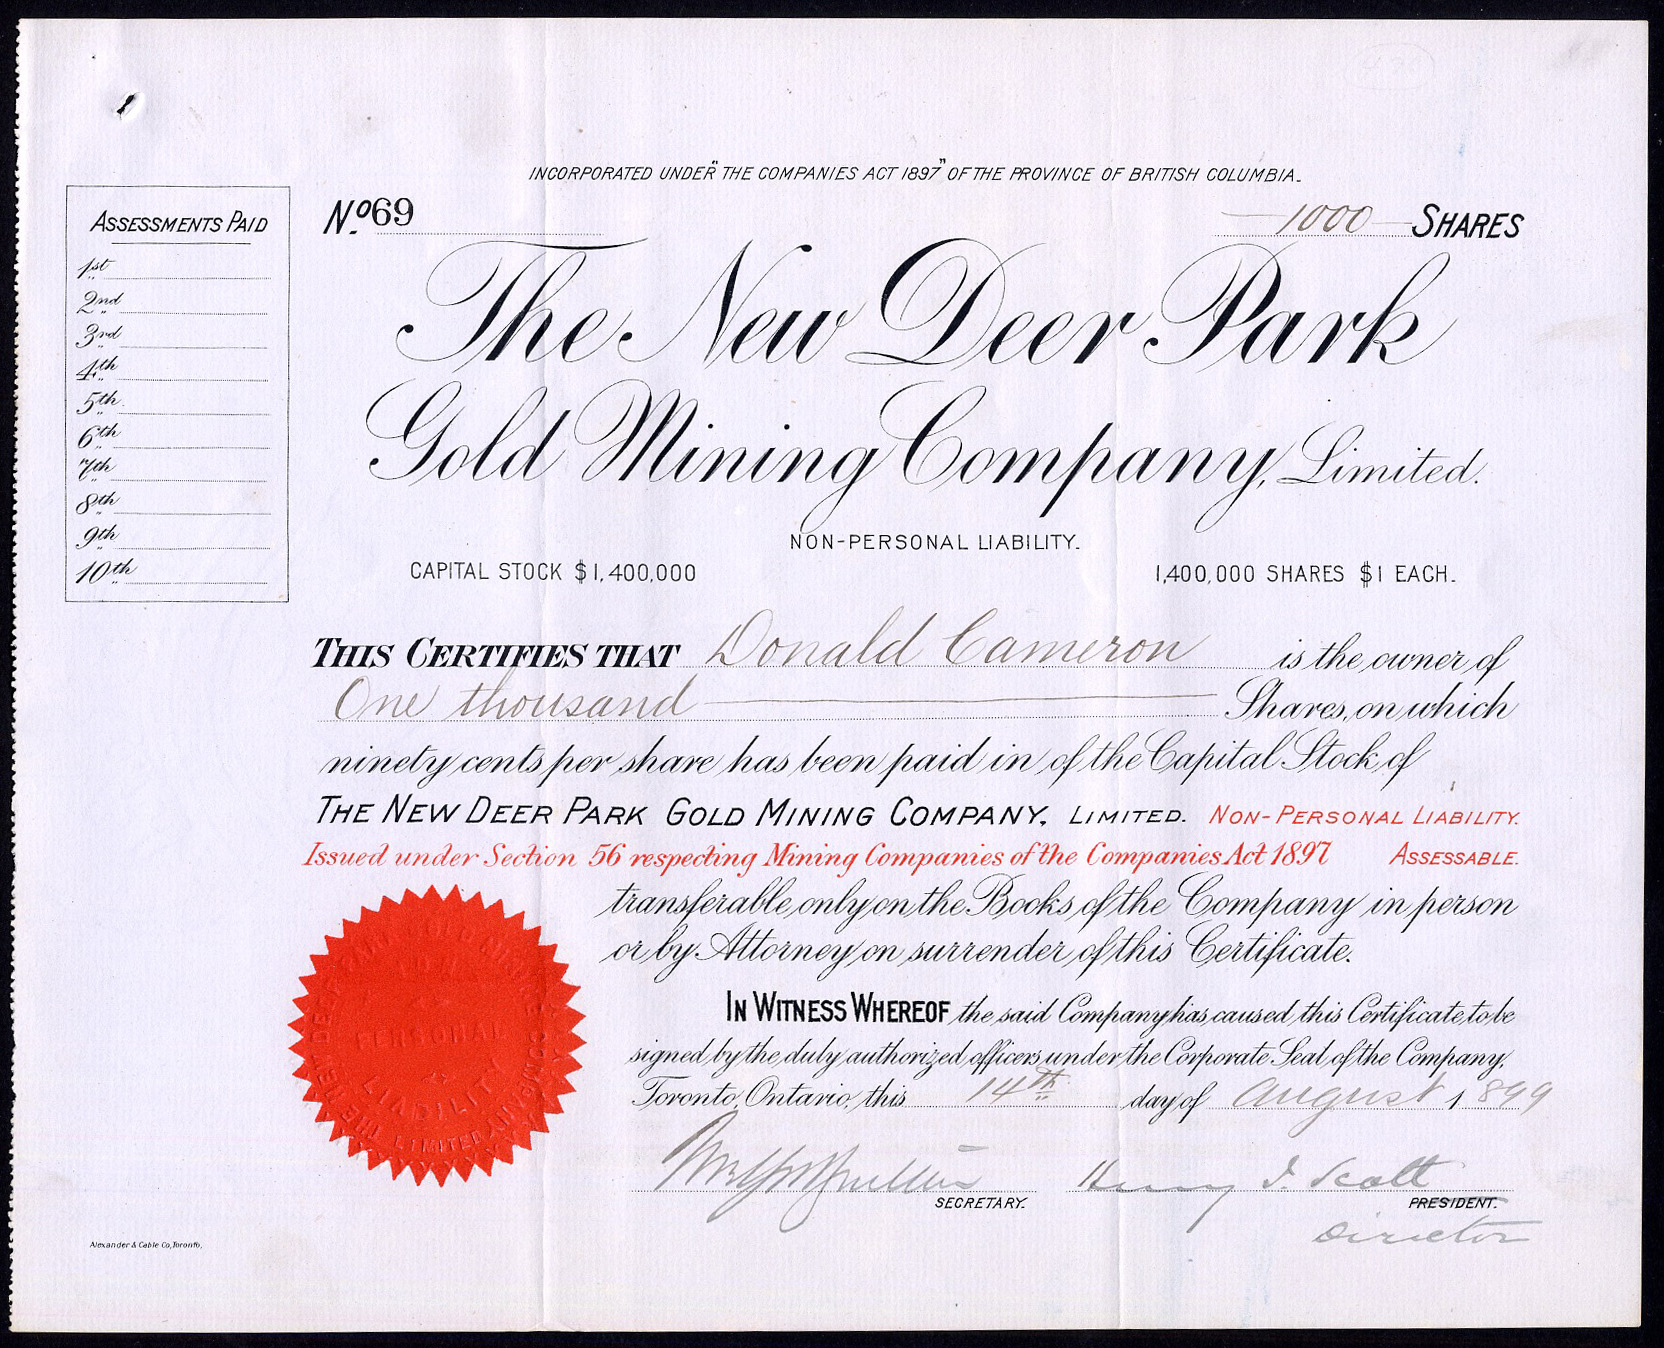 INCORPORATED UNDER "THE COMPANIES ACT 1897" OF THE PROVINCE OF BRITISH COLUMBIA.
No. 69
1000 SHARES
ASSESSMENTS PAID
1st
2nd
3rd
4th
5th
6th
7th
8th
9th
10th
The New Deer Park
Gold Mining Company, Limited.
NON-PERSONAL LIABILITY.
CAPITAL STOCK $1,400,000
1,400,000 SHARES $1 EACH.
THIS CERTIFIES THAT Donald Cameron is the owner of
One thousand Shares, on which
ninety cents per share has been paid in of the Capital Stock of
THE NEW DEER PARK GOLD MINING COMPANY, LIMITED. NON-PERSONAL LIABILITY.
Issued under Section 56 respecting Mining Companies of the Companies Act 1897 ASSESSABLE.
transferable only on the Books of the Company in person
or by Attorney on surrender of this Certificate.
IN WITNESS WHEREOF the said Company has caused this Certificate to be
signed by the duly authorized officers under the Corporate Seal of the Company,
Toronto, Ontario, this 14th day of August 1899
Henry I. Scott
SECRETARY.
PRESIDENT.
Director
THE NEW DEER PARK GOLD MINING COMPANY
LIMITED
NON
PERSONAL
LIABILITY
Alexander & Cable Co, Toronto,